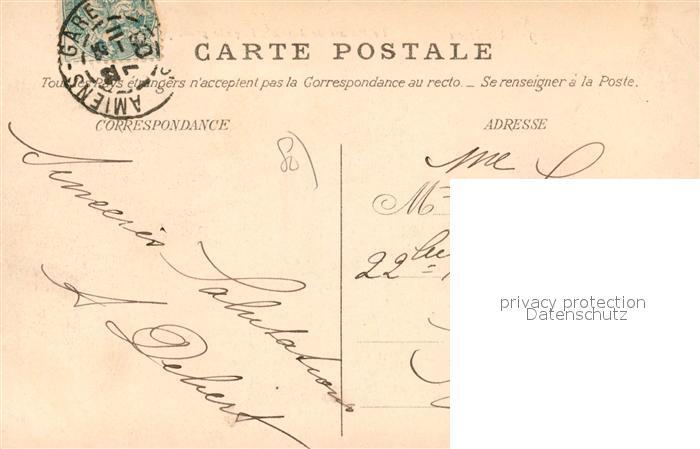 AMIENS-GARE
CARTE POSTALE
Tous les Pays étrangers n'acceptent pas la Correspondance au recto. _ Se renseigner à la Poste.
CORRESPONDANCE
ADRESSE
80
Sinceres
Salutations
A Debert
Mme
M
22
privacy protection
Datenschutz